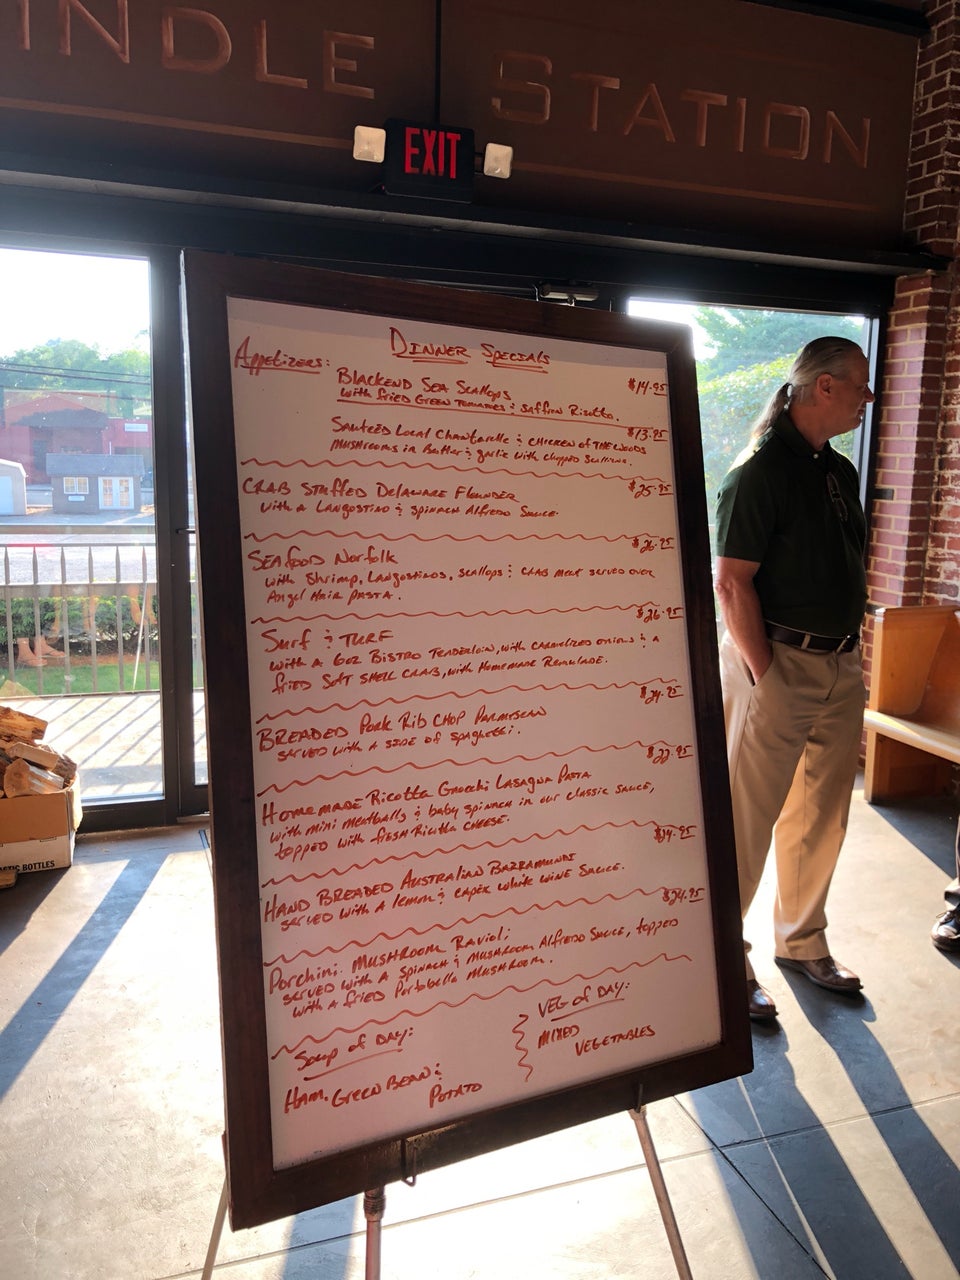 NDLE STATION
EXIT
DINNER SPECIALS
APPETIZERS:
BLACKEND SEA SCALLOPS $14.95
with FRIED GREEN TOMATOES & SAFFRON RISOTTO.
SAUTEED LOCAL CHANTARELLE & CHICKEN OF THE WOODS $13.95
MUSHROOMS in BUTTER & GARLIC WITH CHOPPED SCALLIONS.
CRAB STUFFED DELAWARE FLOUNDER $25.95
with a LANGOSTINO & SPINACH ALFREDO SAUCE.
SEAFOOD NORFOLK $26.95
with SHRIMP, LANGOSTINOS, SCALLOPS & CRAB MEAT SERVED OVER
ANGEL HAIR PASTA.
SURF & TURF $26.95
with a 6oz BISTRO TENDERLOIN, with CARMELIZED ONIONS & a
fried SOFT SHELL CRAB, with HOMEMADE REMULADE.
BREADED PORK RIB CHOP PARMESEAN $24.95
SERVED WITH A SIDE OF SPAGHETTI.
HOMEMADE RICOTTA GNOCCHI LASAGNA PASTA $22.95
with mini MEATBALLS & BABY SPINACH in OUR CLASSIC SAUCE,
topped with FRESH RICOTTA CHEESE.
HAND BREADED AUSTRALIAN BARRAMUNDI $24.95
SERVED WITH A LEMON & CAPER WHITE WINE SAUCE.
PORCHINI MUSHROOM RAVIOLI $24.95
SERVED WITH A SPINACH & MUSHROOM ALFREDO SAUCE, topped
with a fried PORTOBELLO MUSHROOM.
SOUP OF DAY:
HAM, GREEN BEAN &
POTATO
VEG OF DAY:
MIXED
VEGETABLES
STIC BOTTLES